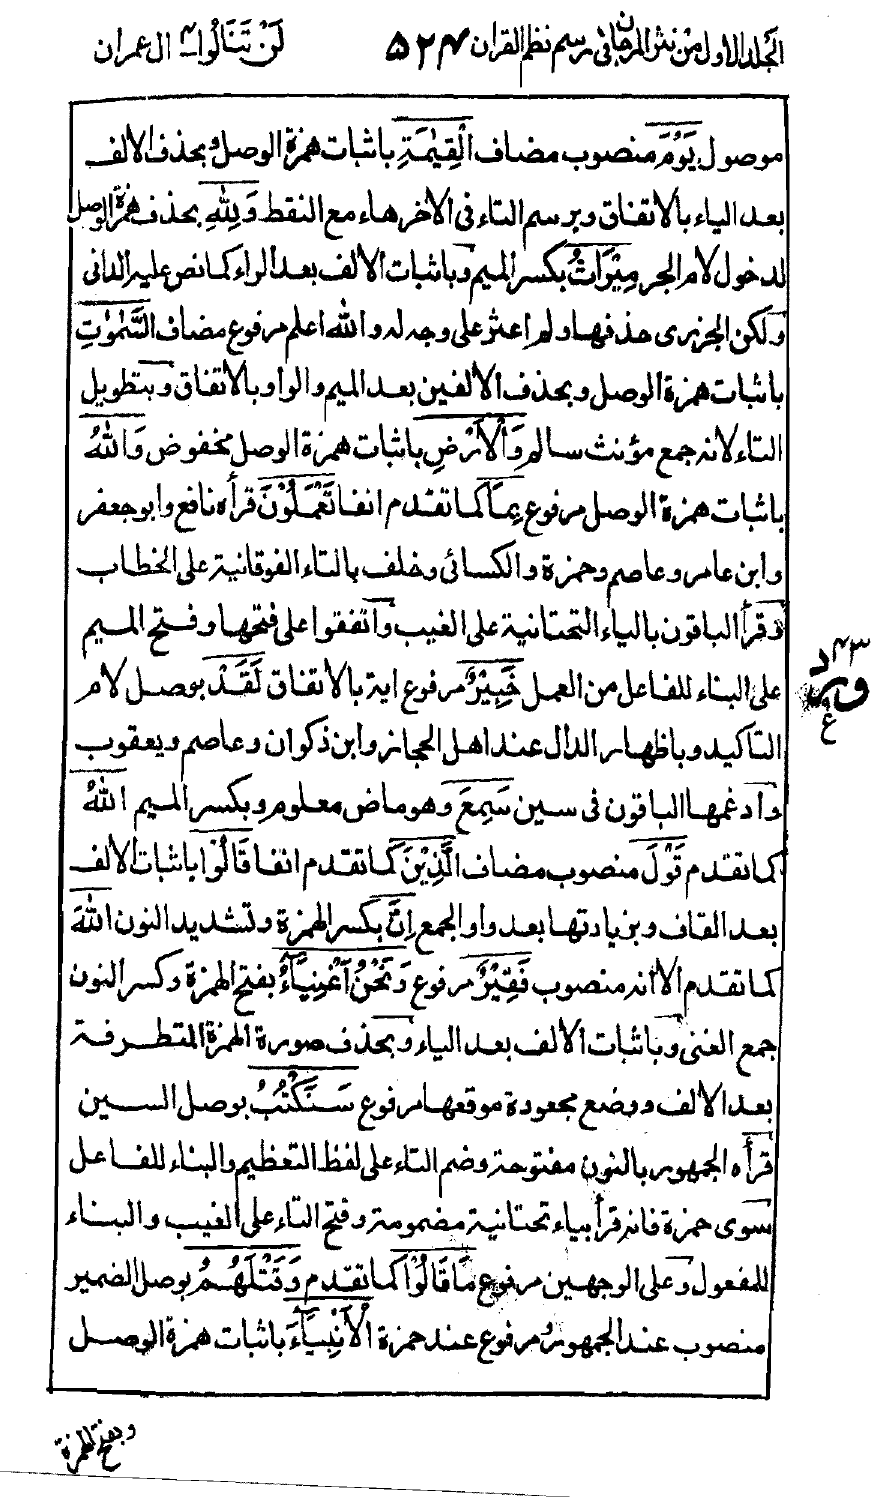 الجلد الاول من نثر المرجان فى رسم نظم القران ۵۲۴ لَنْ تَنَالُوا۴ ال عمران
موصول يَوْمَ منصوب مضاف الْقِيٰمَةِ باثبات همزة الوصل و بحذف الالف
بعد الياء بالاتفاق و برسم التاء فى الاخر هاء مع النقط وَلِلّٰهِ بحذف همزة الوصل
لدخول لام الجر مِيْرَاثُ بكسر الميم و باثبات الالف بعد الراء كما نص عليه الدانى
ولكن الجزرى حذفها ولم اعثر على وجه له والله اعلم مرفوع مضاف السَّمٰوٰتِ
باثبات همزة الوصل و بحذف الالفين بعد الميم والواو بالاتفاق و بتطويل
التاء لانه جمع مؤنث سالم وَالْاَرْضِ باثبات همزة الوصل مخفوض وَاللّٰهُ
باثبات همزة الوصل مرفوع بِمَا كما تقدم انفا تَعْمَلُوْنَ قرأه نافع وابو جعفر
وابن عامر وعاصم وحمزة والكسائى وخلف بالتاء الفوقانية على الخطاب
وقرأ الباقون بالياء التحتانية على الغيب واتفقوا على فتحها وفتح الميم
على البناء للفاعل من العمل خَبِيْرٌ مرفوع اية بالاتفاق لَقَدْ بوصل لام
التاكيد و باظهار الدال عند اهل الحجاز وابن ذكوان وعاصم ويعقوب
وادغمها الباقون فى سين سَمِعَ وهو ماض معلوم و بكسر الميم اللّٰهُ
كما تقدم قَوْلَ منصوب مضاف الَّذِيْنَ كما تقدم انفا قَالُوْا باثبات الالف
بعد القاف و بزيادتها بعد واو الجمع اِنَّ بكسر الهمزة وتشديد النون اللّٰهَ
كما تقدم الا انه منصوب فَقِيْرٌ مرفوع وَنَحْنُ اَغْنِيَآءُ بفتح الهمزة وكسر النون
جمع الغنى و باثبات الالف بعد الياء و بحذف صورة الهمزة المتطرفة
بعد الالف ووضع مجعودة موقعها مرفوع سَنَكْتُبُ بوصل السين
قرأه الجمهور بالنون مفتوحة وضم التاء على لفظ التعظيم والبناء للفاعل
سوى حمزة فانه قرأ بياء تحتانية مضمومة وفتح التاء على الغيب والبناء
للمفعول وعلى الوجهين مرفوع مَا قَالُوْا كما تقدم وَقَتْلَهُمُ بوصل الضمير
منصوب عند الجمهور ومرفوع عند حمزة الْاَنْبِيَآءَ باثبات همزة الوصل
وبفتح الهمزة